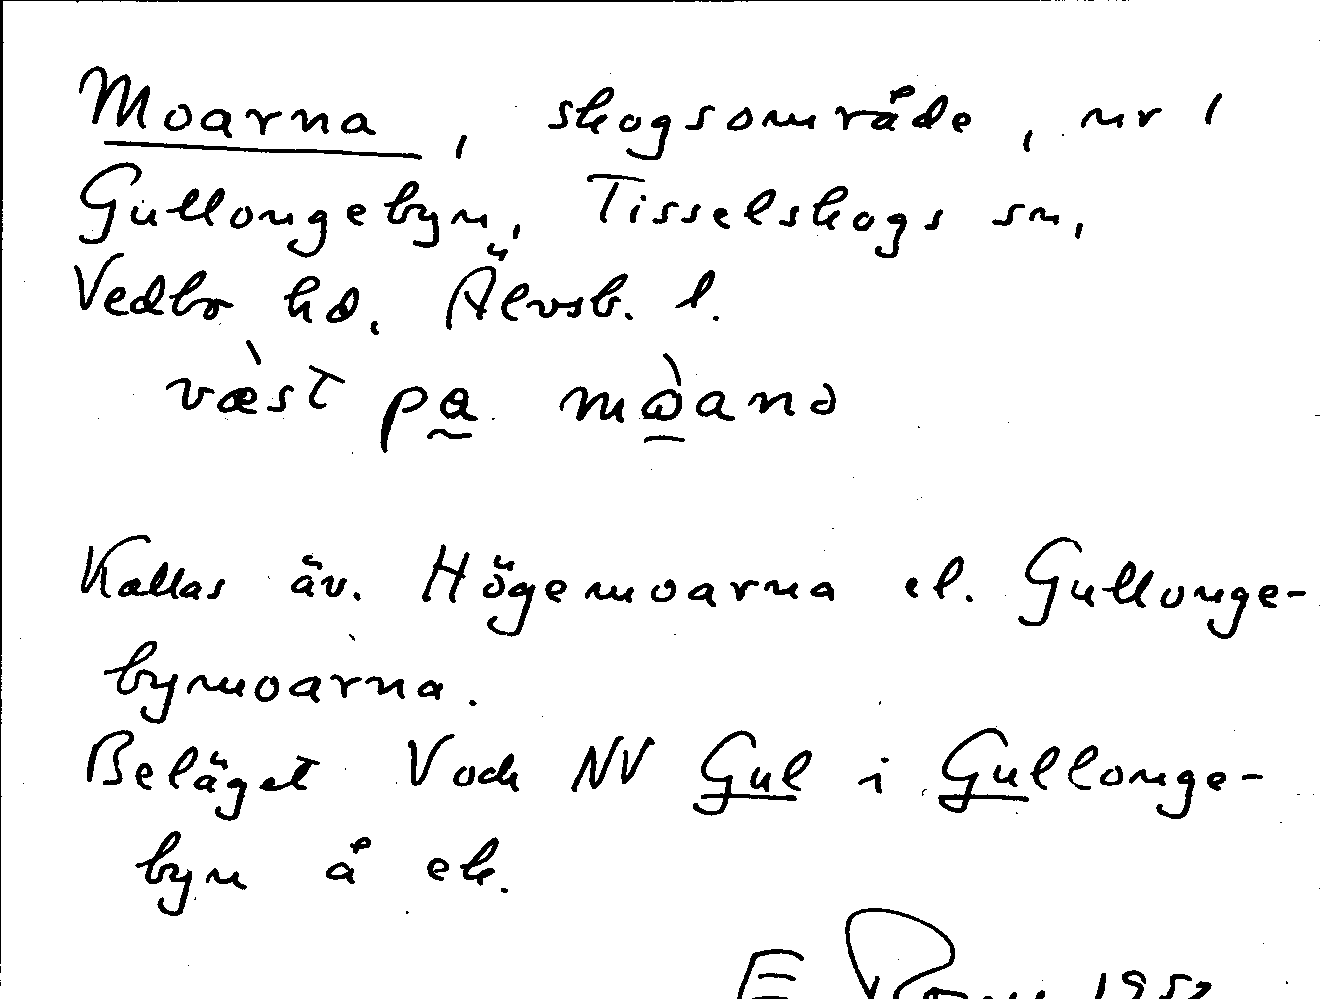 Moarna, skogsområde, nr 1
Gullongebyn, Tisselskogs sn,
Vedbo hd, Älvsb. l.
væ̀st pa̰ mò̱anə
Kallas äv. Högemoarna el. Gullonge-
bymoarna.
Beläget V och NV Gul i Gullonge-
byn å ek.
E